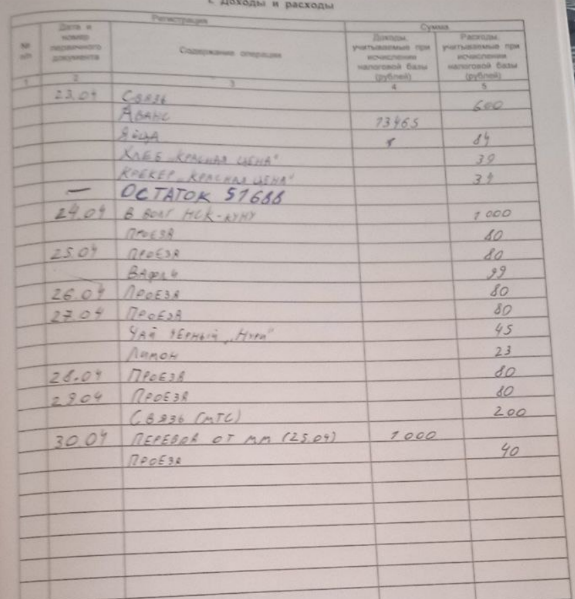 I. Доходы и расходы
Регистрация Сумма
№ п/п Дата и номер первичного документа Содержание операции Доходы, учитываемые при исчислении налоговой базы (рублей) Расходы, учитываемые при исчислении налоговой базы (рублей)
1 2 3 4 5
23.04 Связь 600
Аванс 73465
Яйца 84
Хлеб "Красная цена" 39
Крекер "Красная цена"
— ОСТАТОК 51688
24.04 В долг 1000
Проезд 80
25.04 Проезд 80
Вафли 99
26.04 Проезд 80
27.04 Проезд 80
Чай чёрный "Нури" 45
Лимон 23
28.04 Проезд 80
29.04 Проезд 80
Связь (МТС) 200
30.04 Перевод от мм (25.04) 1000
Проезд 40